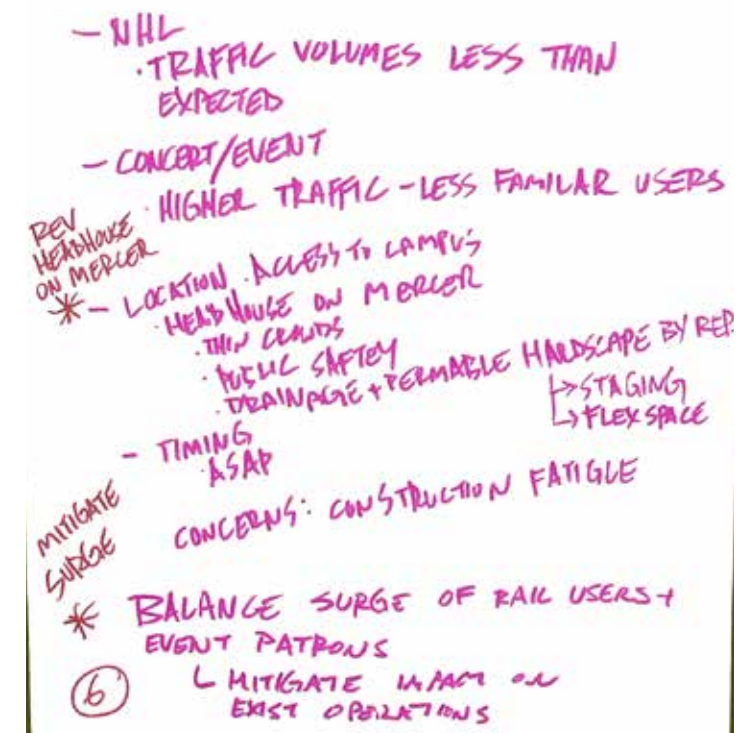 - NHL
· TRAFFIC VOLUMES LESS THAN
EXPECTED
- CONCERT/EVENT
· HIGHER TRAFFIC - LESS FAMILAR USERS
REV
HEADHOUSE
ON MERCER
* - LOCATION · ACCESS TO CAMPUS
· HEAD HOUSE ON MERCER
· THIN CROWDS
· PUBLIC SAFTEY
· DRAINAGE + PERMABLE HARDSCAPE BY REP.
↳ STAGING
↳ FLEX SPACE
- TIMING
· ASAP
MITIGATE
SURGE
CONCERNS: CONSTRUCTION FATIGUE
* BALANCE SURGE OF RAIL USERS +
EVENT PATRONS
└ MITIGATE IMPACT ON
EXIST OPERATIONS
6